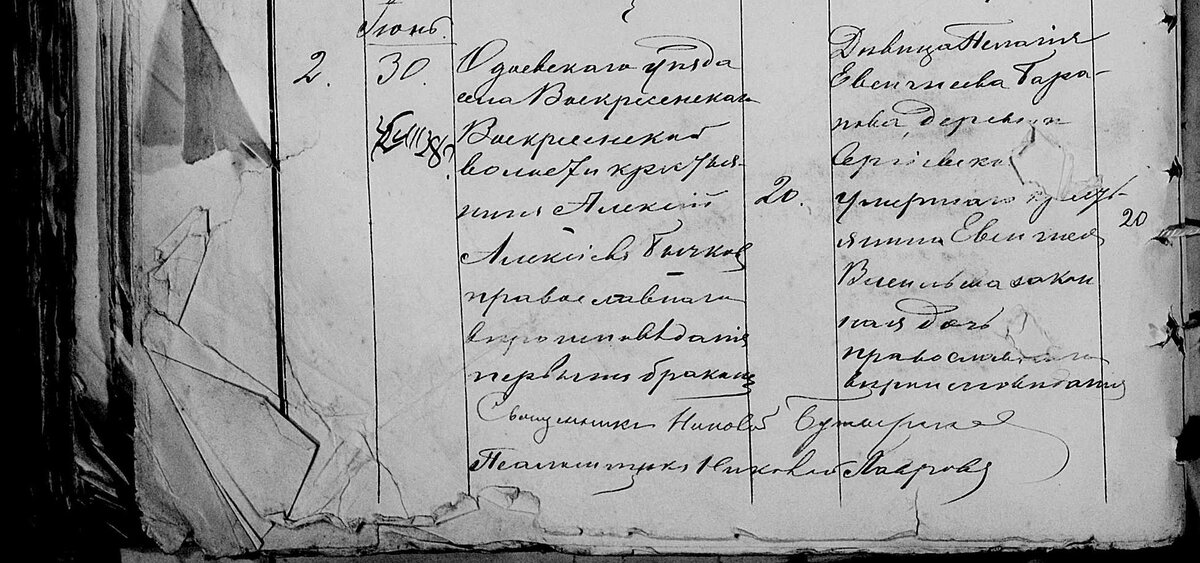 Іюнь.
2.
30.
Одоевскаго уѣзда
села Воскресенскаго
Воскресенской
волости крестья-
нинъ Алексѣй
Алексѣевъ Бычковъ
православнаго
вѣроисповѣданія
первымъ бракомъ
20.
Дѣвица Пелагія
Евгеніева Бара-
нова, деревни
Сергіевск
умершаго кресть-
янина Евгенія
Васильева закон
ная дочь
православнаго
вѣроисповѣданія
20
Священникъ Николай
Псаломщикъ Николай Лавровъ